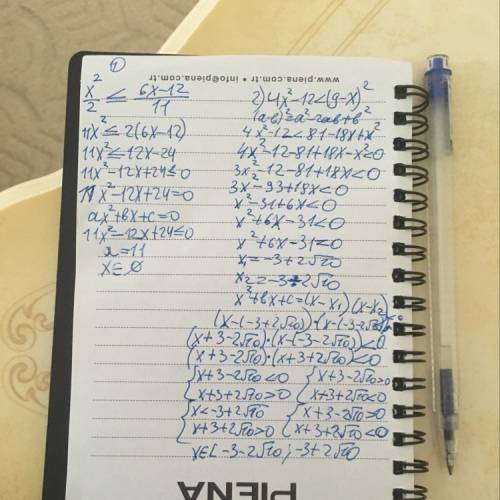 www.piena.com.tr • info@piena.com.tr
1
x²/2 ≤ 6x-12/11
11x² ≤ 2(6x-12)
11x² ≤ 12x-24
11x²-12x+24≤0
11x²-12x+24=0
ax²+bx+c=0
11x²-12x+24≤0
a=11
x∈∅
2) 4x²-12<(9-x)²
(a-b)²=a²-2ab+b²
4x²-12<81-18x+x²
4x²-12-81+18x-x²<0
3x²-12-81+18x<0
3x²-93+18x<0
x²-31+6x<0
x²+6x-31<0
x²+6x-31=0
x₁=-3+2√10
x₂=-3-2√10
x²+bx+c=(x-x₁)(x-x₂)
(x-(-3+2√10))·(x-(-3-2√10))<0
(x+3-2√10)·(x-(-3-2√10))<0
(x+3-2√10)·(x+3+2√10)<0
{x+3-2√10<0 {x+3-2√10>0
x+3+2√10>0 x+3+2√10<0
{x<-3+2√10 {x+3-2√10>0
x+3+2√10>0 x+3+2√10<0
x∈[-3-2√10; -3+2√10
PIENA